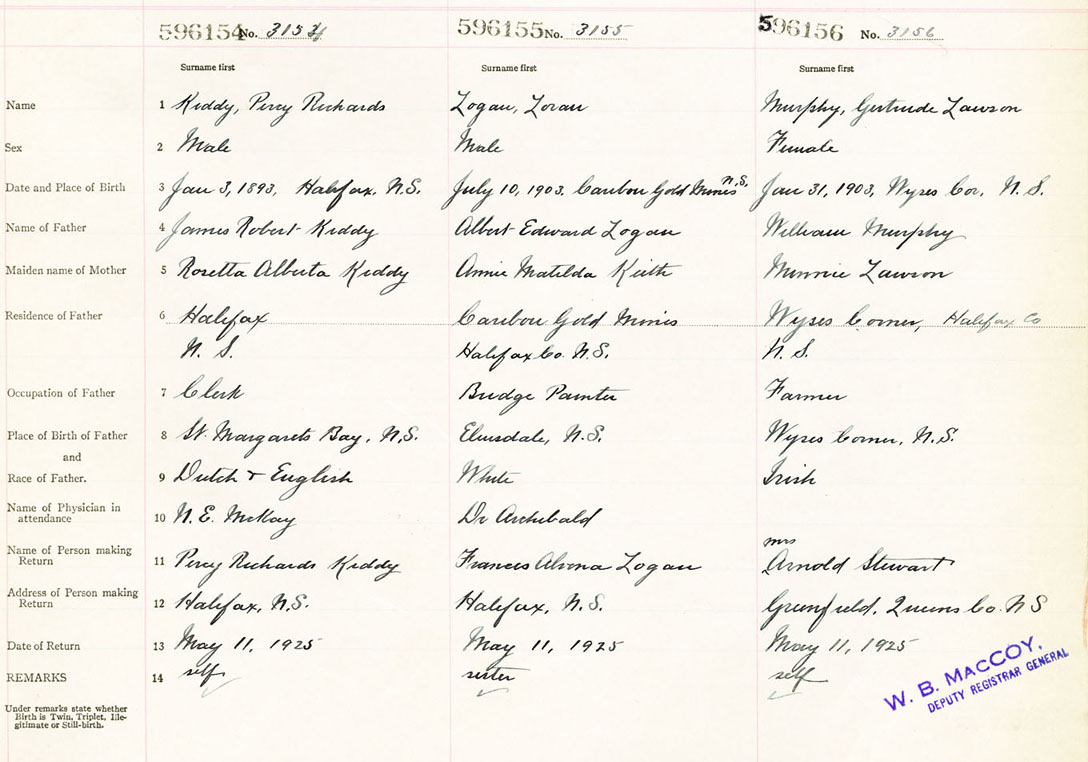 596154 No. 3154 596155 No. 3155 596156 No. 3156
Surname first Surname first Surname first
Name 1 Kiddy, Percy Richards Logan, Loran Murphy, Gertrude Lawson
Sex 2 Male Male Female
Date and Place of Birth 3 Jan 3, 1893, Halifax, N.S. July 10, 1903, Caribou Gold Mines N.S. Jan 31, 1903, Wyses Cor, N.S.
Name of Father 4 James Robert Kiddy Albert Edward Logan William Murphy
Maiden name of Mother 5 Rosetta Alberta Kiddy Annie Matilda Keith Minnie Lawson
Residence of Father 6 Halifax Caribou Gold Mines Wyses Corner, Halifax Co
N. S. Halifax Co. N.S. N. S.
Occupation of Father 7 Clerk Bridge Painter Farmer
Place of Birth of Father 8 St. Margarets Bay, N.S. Elmsdale, N.S. Wyses Corner, N.S.
and
Race of Father. 9 Dutch & English White Irish
Name of Physician in
attendance 10 N. E. McKay Dr Archibald
Name of Person making mrs
Return 11 Percy Richards Kiddy Francis Alvona Logan Arnold Stewart
Address of Person making
Return 12 Halifax, N.S. Halifax, N.S. Greenfield, Queens Co. N S
Date of Return 13 May 11, 1925 May 11, 1925 May 11, 1925
REMARKS 14 self sister self
Under remarks state whether
Birth is Twin, Triplet, Ille-
gitimate or Still-birth.
W. B. MACCOY,
DEPUTY REGISTRAR GENERAL